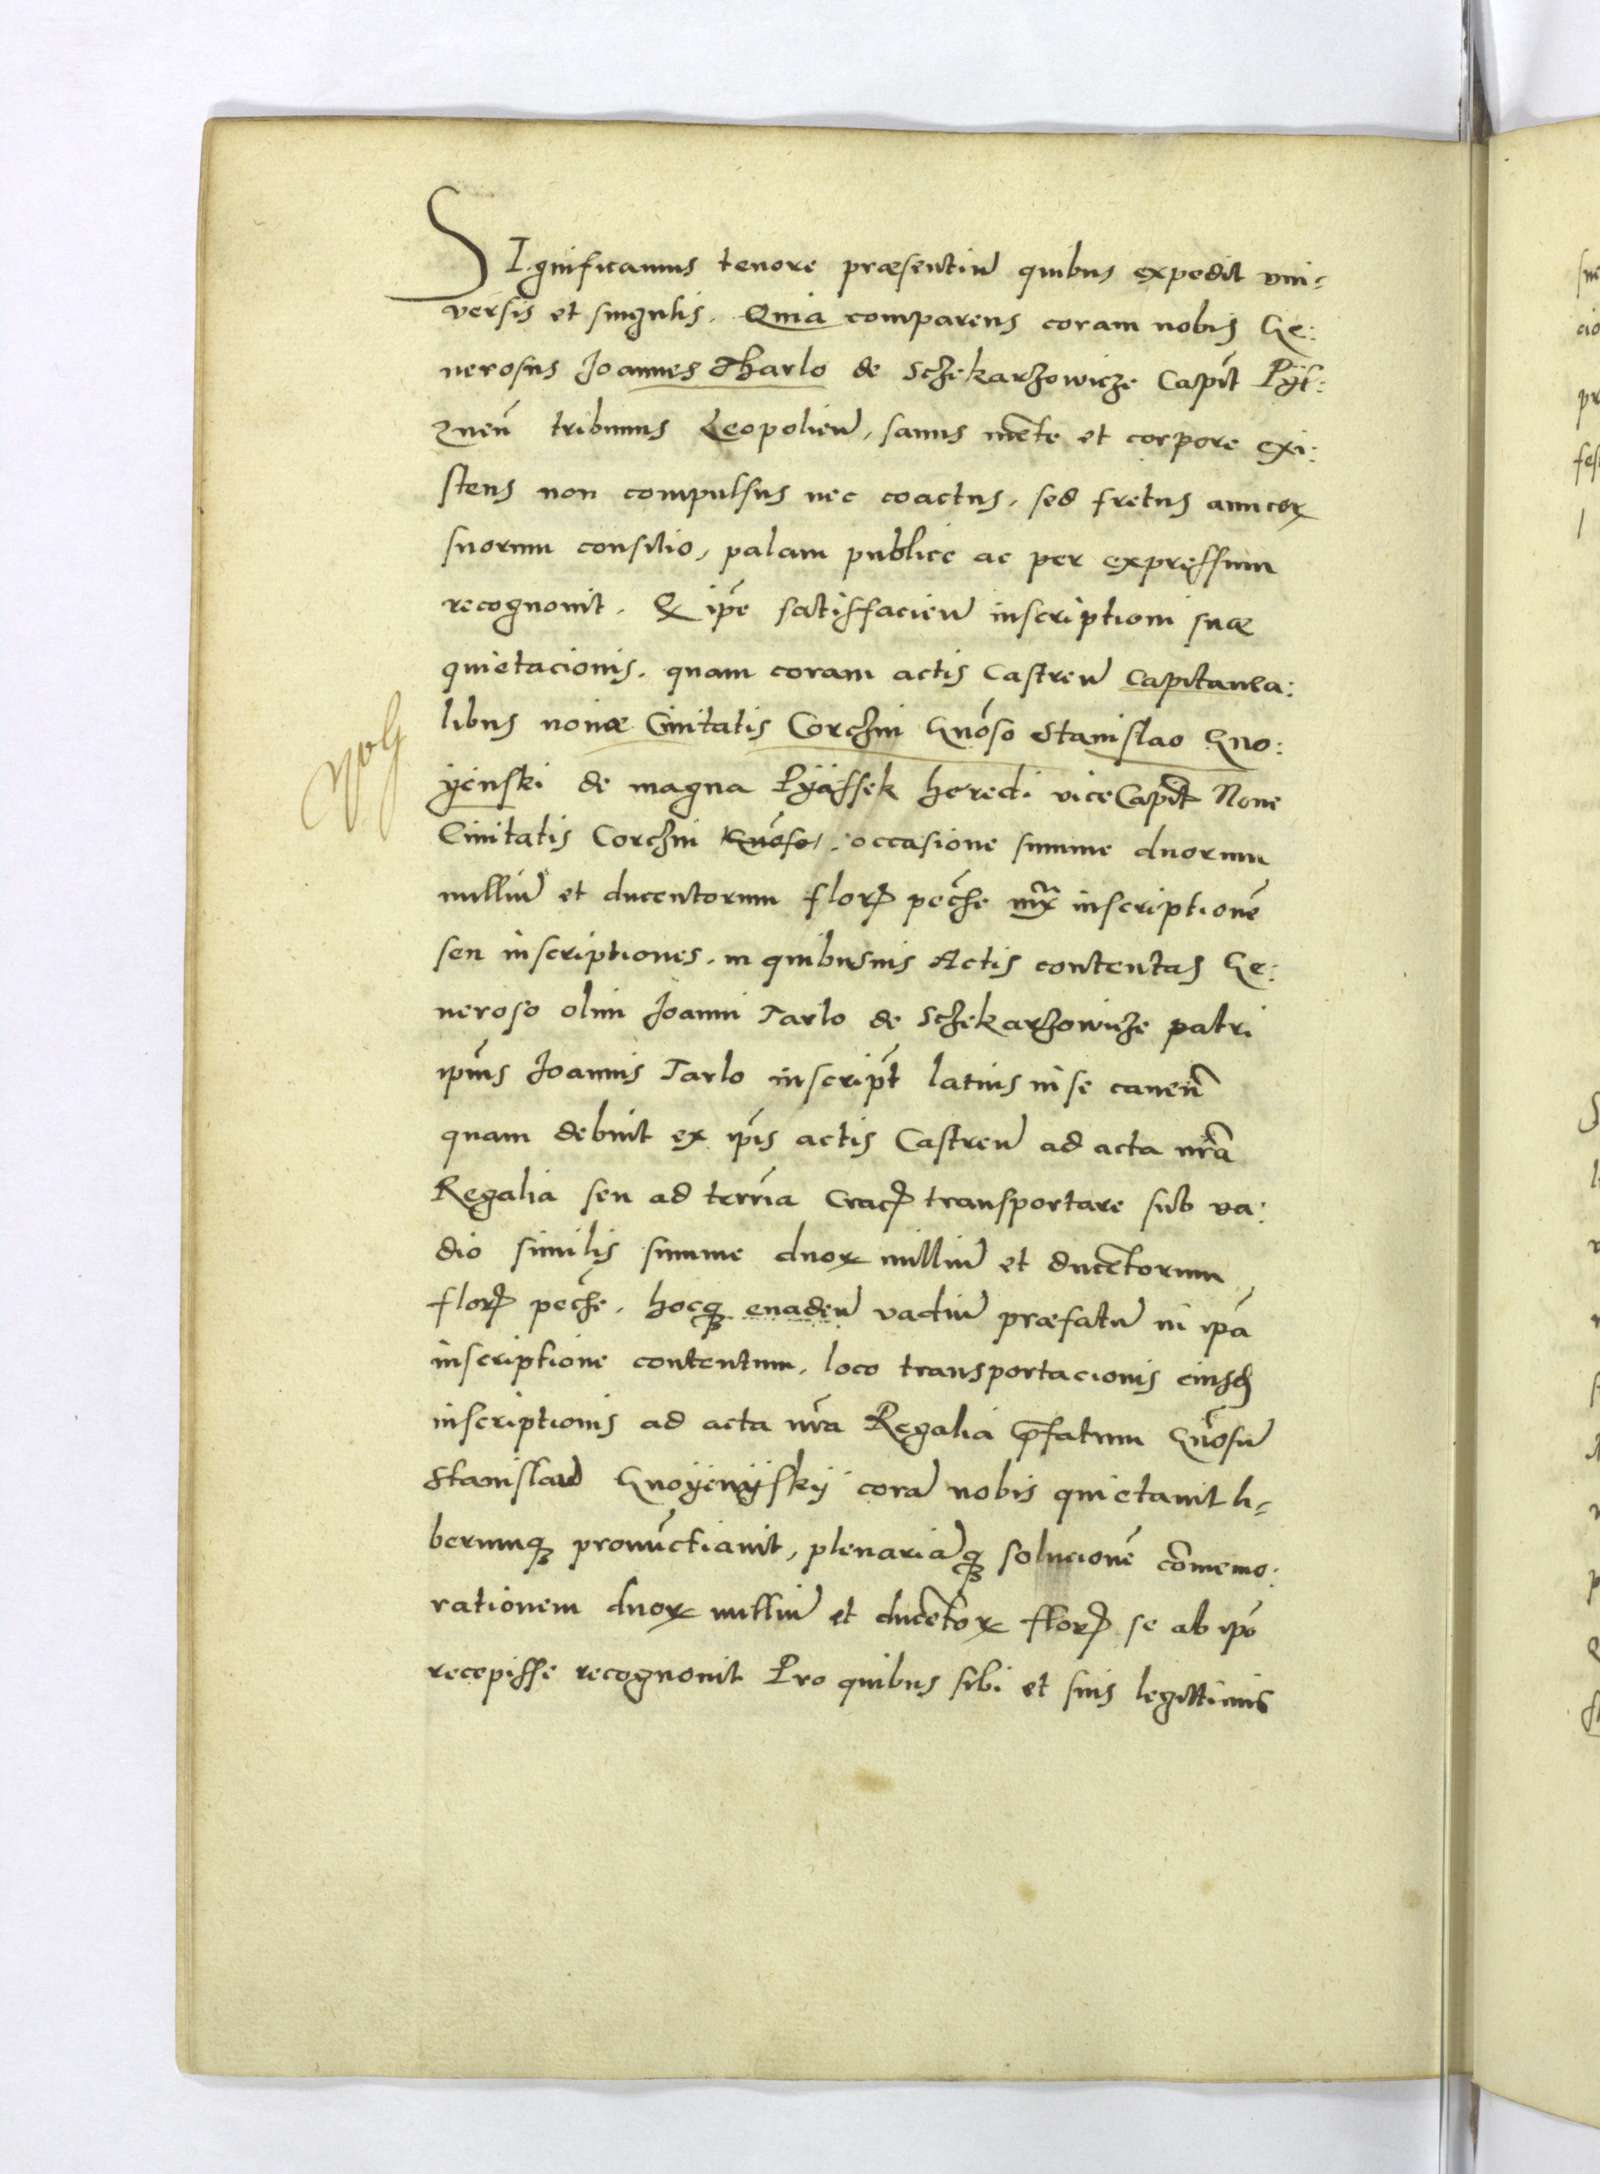 SIgnificamus tenore præsentiu̅ quibus expedit vni-
versis et singulis. Quia comparens coram nobis Ge:
nerosus Joannes Tharlo de Sczekarzowicze Capit̅ Pÿl:
znen̅ tribunus Leopolien̅, sanus me̅te et corpore exi:
stens non compulsus nec coactus, sed fretus amicoꝝ
suorum consilio, palam publice ac per expressum
recognouit. Q ip̅e satisfacien̅ inscriptioni suæ
quietacionis. quam coram actis Castren̅ Capitanea:
libus nouæ Ciuitatis Corczin G̅noso Stanislao Gno:
ÿenski de magna Pÿassek heredi viceCapit̅ Noue
Ciuitatis Corczin G̅noso, occasione summe duorum
milliu̅ et ducentorum floꝝ pec̅he iux̅ inscriptione̅
seu inscriptiones. in quibusuis Actis contentas Ge:
neroso olim Joanni Tarlo de Sczekarzowicze patri
ip̅ius Joannis Tarlo inscript̅ latius in se cauen̅
quam debuit ex ip̅is actis Castren̅ ad acta nr̅a
Regalia seu ad terr̅ia Crac̅ transportare sub va:
dio similis summe duoꝝ milliu̅ et duce̅torum
floꝝ pec̅he. hocqꝫ euaden̅ vadiu̅ præfatu̅ in ip̅a
inscriptione contentum, loco transportacionis eiusd̅
inscriptionis ad acta nr̅a Regalia p̅fatum G̅nosu̅
Stanislau̅ Gnoÿenÿskÿ cora̅ nobis quietauit li-
berumqꝫ pronu̅ctiauit, plenaria̅qꝫ solucione̅ co̅memo:
rationem duoꝝ milliu̅ et duce̅toꝝ floꝝ se ab ip̅o
recepisse recognouit Pro quibus sibi et suis legittimis